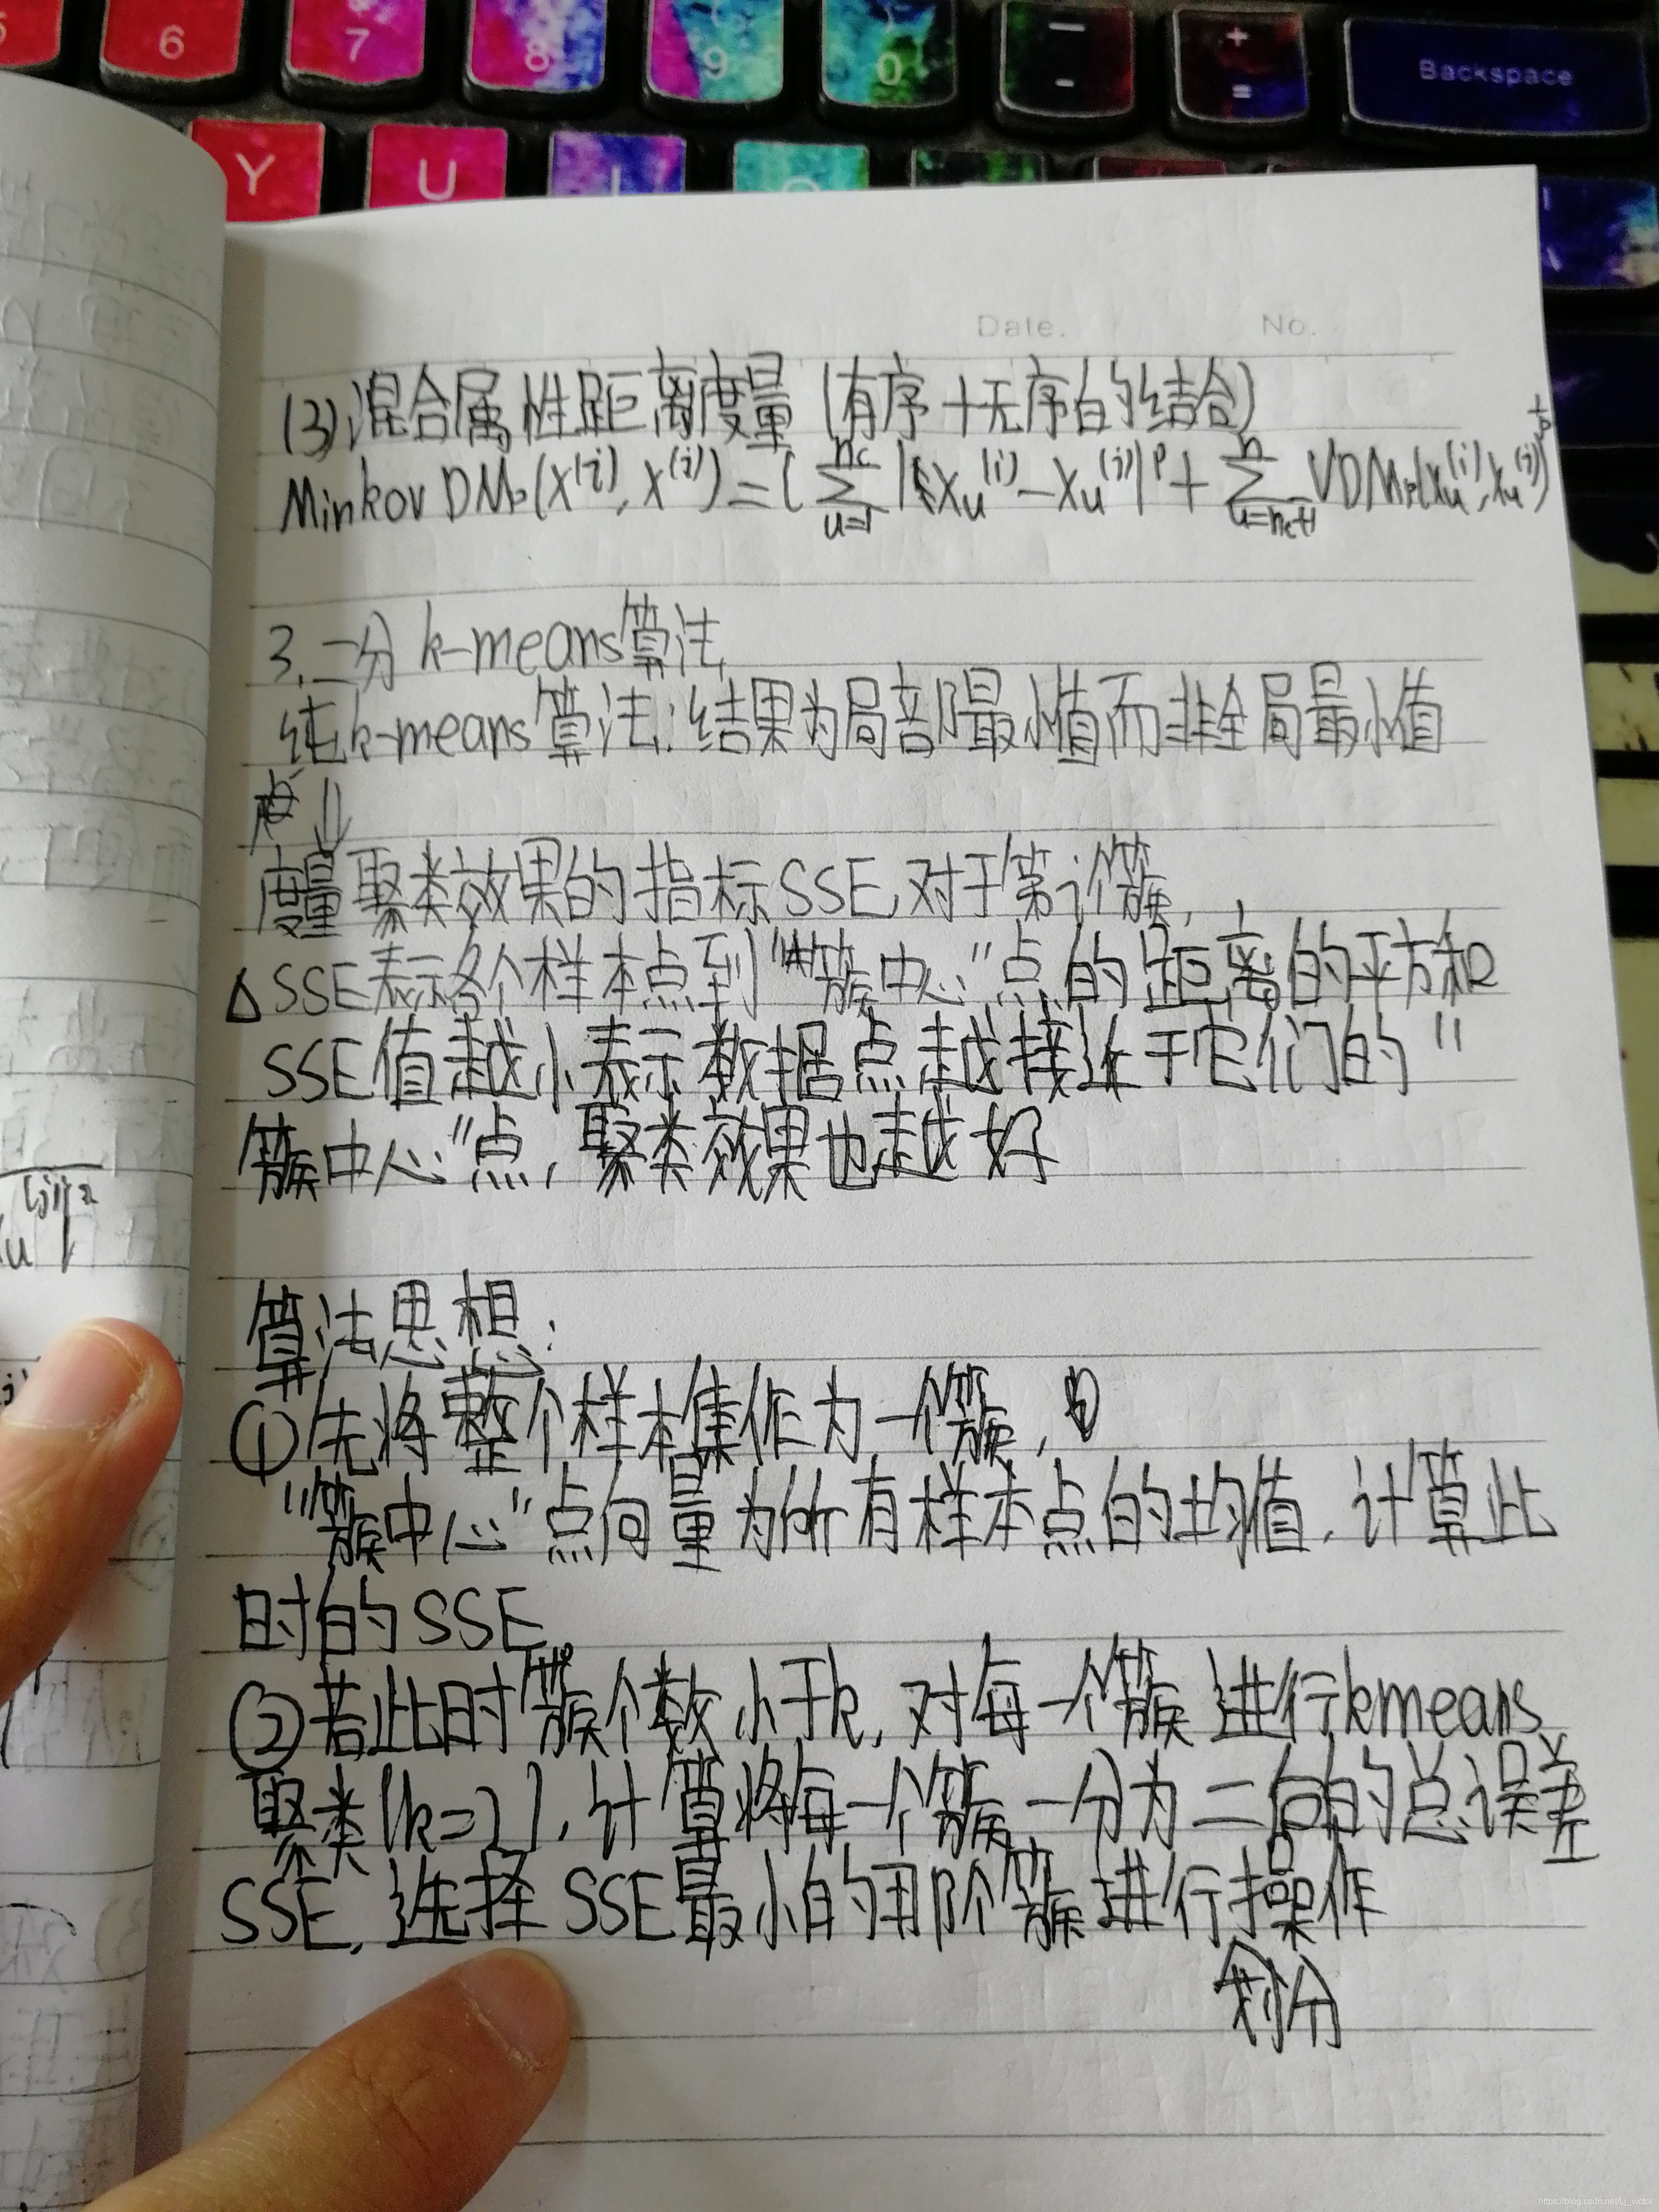 6
7
8
9
0
-
+
=
Backspace
Y
U
I
Date.
No.
(3)、混合属性距离度量 (有序+无序的结合)
MinkovDMp(x^(i), x^(j)) = ( ∑_{u=1}^{nc} |x_u^(i) - x_u^(j)|^p + ∑_{u=nc+1}^{n} VDMp(x_u^(i), x_u^(j)) )^{1/p}
3、二分 k-means算法
纯k-means算法:结果为局部最小值而非全局最小值
点 ↓
度量聚类效果的指标SSE,对于第i个簇,
△ SSE表示各个样本点到"簇中心"点的距离的平方和
SSE值越小表示数据点越接近于它们的"
簇中心"点,聚类效果也越好
算法思想:
①先将整个样本集作为一个簇,
"簇中心"点向量为所有样本点的均值,计算此
时的SSE。
②若此时簇个数小于k,对每一个簇进行kmeans
聚类(k=2),计算将每一个簇一分为二后的总误差
SSE,选择SSE最小的那个簇进行操作
划分
u^(j)|^2
https://blog.csdn.net/Lj_victor